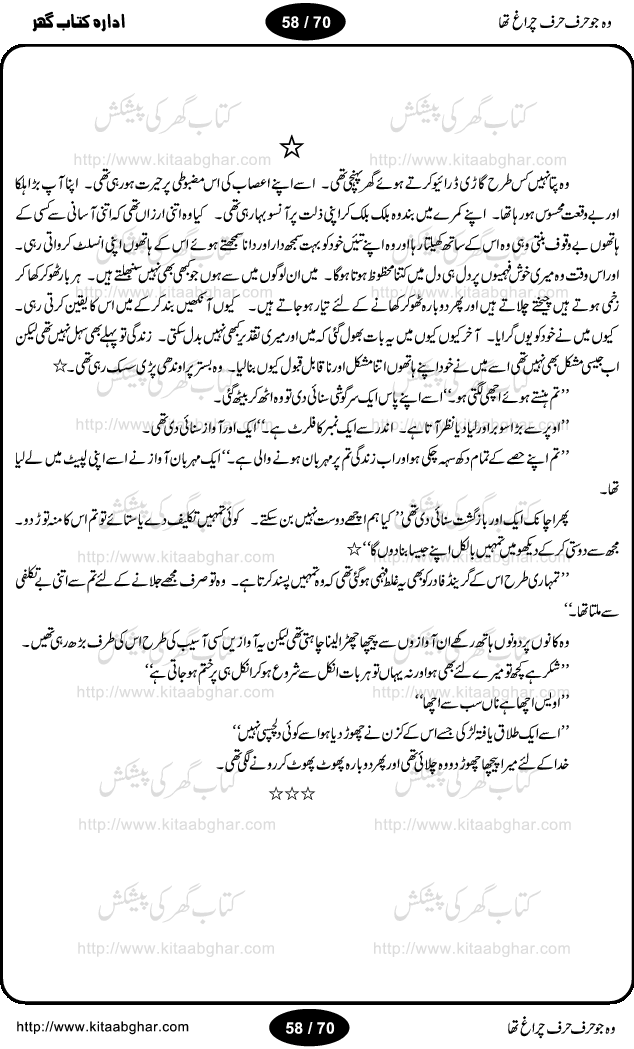 وہ جو حرف حرف چراغ تھا
58 / 70
ادارہ کتاب گھر
کتاب گھر کی پیشکش کتاب گھر کی پیشکش
☆
http://www.kitaabghar.com http://www.kitaabghar.com
وہ پتا نہیں کس طرح گاڑی ڈرائیو کرتے ہوئے گھر پہنچی تھی۔ اسے اپنے اعصاب کی اس مضبوطی پر حیرت ہو رہی تھی۔ اپنا آپ بڑا ہلکا
اور بے وقعت محسوس ہو رہا تھا۔ اپنے کمرے میں بند وہ بلک بلک کر اپنی ذلت پر آنسو بہا رہی تھی۔ کیا وہ اتنی ارزاں تھی کہ اتنی آسانی سے کسی کے
ہاتھوں بے وقوف بنتی وہی وہ اس کے ساتھ کھیلتا رہا اور وہ اپنے تئیں خود کو بہت سمجھ دار اور دانا سمجھتے ہوئے اس کے ہاتھوں اپنی انسلٹ کرواتی رہی۔
اور اس وقت وہ میری خوش فہمیوں پر دل ہی دل میں کتنا محظوظ ہوتا ہو گا۔ میں ان لوگوں میں سے ہوں جو کبھی بھی نہیں سنبھلتے ہیں۔ ہر بار ٹھوکر کھا کر
زخمی ہوتے ہیں چیختے چلاتے ہیں اور پھر دوبارہ ٹھوکر کھانے کے لئے تیار ہو جاتے ہیں۔ کیوں آنکھیں بند کر کے میں اس کا یقین کرتی رہی۔
کیوں میں نے خود کو یوں گرایا۔ آخر کیوں کیوں میں یہ بات بھول گئی کہ میں اور میری تقدیر کبھی نہیں بدل سکتی۔ زندگی تو پہلے بھی سہل نہیں تھی لیکن
اب جیسی مشکل بھی نہیں تھی اسے میں نے خود اپنے ہاتھوں اتنا مشکل اور ناقابل قبول کیوں بنا لیا۔ وہ بستر پر اوندھی پڑی سسک رہی تھی۔☆
’’تم ہنستے ہوئے اچھی لگتی ہو۔‘‘ اسے اپنے پاس ایک سرگوشی سنائی دی تو وہ اٹھ کر بیٹھ گئی۔
’’اوپر سے بڑا سوبر اور لیا دیا نظر آتا ہے۔ اندر سے ایک نمبر کا فلرٹ ہے۔‘‘ ایک اور آواز سنائی دی تھی۔
’’تم اپنے حصے کے تمام دکھ سہہ چکی ہو اور اب زندگی تم پر مہربان ہونے والی ہے۔‘‘ ایک مہربان آواز نے اسے اپنی لپیٹ میں لے لیا
تھا۔
پھر اچانک ایک اور بازگشت سنائی دی تھی ’’کیا ہم اچھے دوست نہیں بن سکتے۔ کوئی تمہیں تکلیف دے یا ستائے تو تم اس کا منہ توڑ دو۔
مجھ سے دوستی کر کے دیکھو میں تمہیں بالکل اپنے جیسا بنا دوں گا‘‘☆
’’تمہاری طرح اس کے گرینڈ فادر کو بھی یہ غلط فہمی ہو گئی تھی کہ وہ تمہیں پسند کرتا ہے۔ وہ تو صرف مجھے جلانے کے لئے تم سے اتنی بے تکلفی
سے ملتا تھا۔‘‘
وہ کانوں پر دونوں ہاتھ رکھے ان آوازوں سے پیچھا چھڑا لینا چاہتی تھی لیکن یہ آوازیں کسی آسیب کی طرح اس کی طرف بڑھ رہی تھیں۔
’’شکر ہے کچھ تو میرے لئے بھی ہوا ورنہ یہاں تو ہر بات انکل سے شروع ہو کر انکل ہی پر ختم ہو جاتی ہے‘‘
’’اویس اچھا ہے ناں سب سے اچھا‘‘
’’اسے ایک طلاق یافتہ لڑکی جسے اس کے کزن نے چھوڑ دیا ہو اسے کوئی دلچسپی نہیں‘‘
خدا کے لئے میرا پیچھا چھوڑ دو وہ چلائی تھی اور پھر دوبارہ پھوٹ پھوٹ کر رونے لگی تھی۔
☆☆☆
کتاب گھر کی پیشکش کتاب گھر کی پیشکش
http://www.kitaabghar.com http://www.kitaabghar.com
کتاب گھر کی پیشکش کتاب گھر کی پیشکش
http://www.kitaabghar.com http://www.kitaabghar.com
وہ جو حرف حرف چراغ تھا
58 / 70
http://www.kitaabghar.com